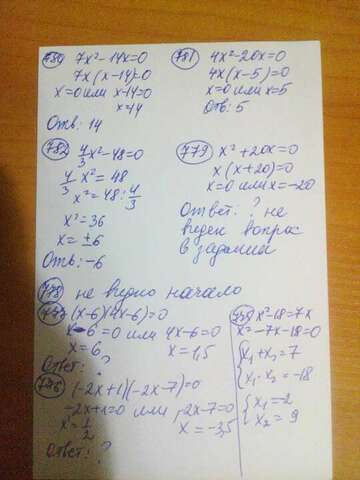 780 7x²-14x=0
7x(x-14)=0
x=0 или x-14=0
x=14
Отв: 14
781 4x²-20x=0
4x(x-5)=0
x=0 или x=5
Отв: 5
782 4/3 x²-48=0
4/3 x²=48
x²=48:4/3
x²=36
x=±6
Отв: -6
779 x²+20x=0
x(x+20)=0
x=0 или x=-20
Ответ: ? не
виден вопрос
в задании
778 не видно начало
777 (x-6)(4x-6)=0
x-6=0 или 4x-6=0
x=6, x=1,5
Ответ: ?
776 (-2x+1)(-2x-7)=0
-2x+1=0 или -2x-7=0
x=1/2 x=-3,5
Ответ: ?
x²-18=7x
x²-7x-18=0
x₁+x₂=7
x₁·x₂=-18
x₁=-2
x₂=9